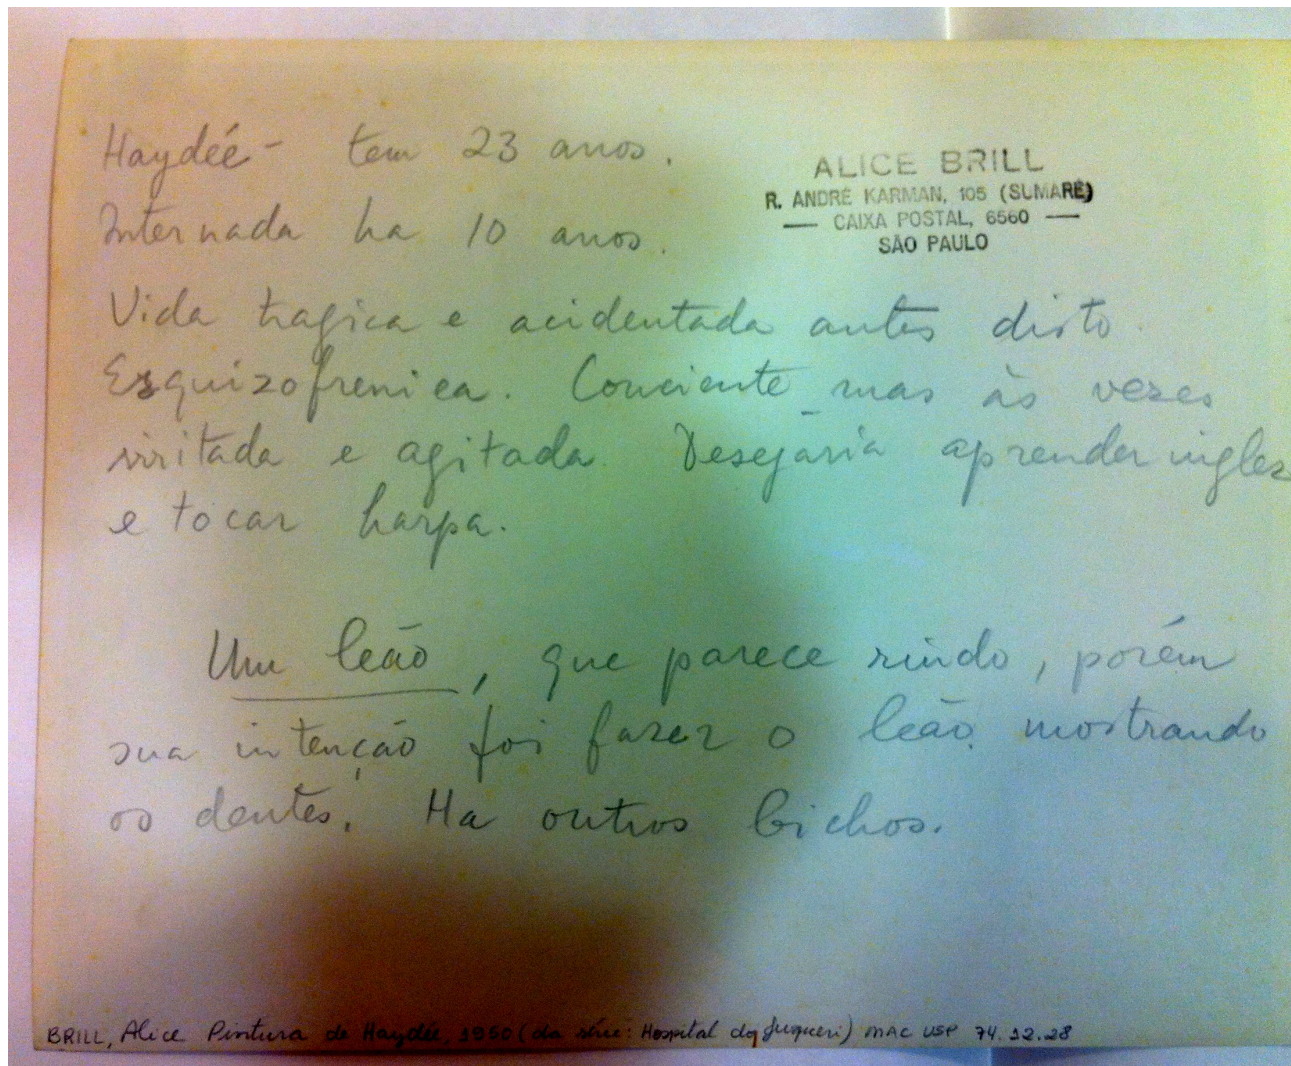 Haydéé - tem 23 anos.
ALICE BRILL
R. ANDRÉ KARMAN, 105 (SUMARÉ)
— CAIXA POSTAL, 6560 —
SÃO PAULO
Internada ha 10 anos.
Vida tragica e acidentada antes disto.
Esquizofrenica. Conciente mas às vezes
irritada e agitada. Desejaria aprender inglez
e tocar harpa.
Um leão, que parece rindo, porém
sua intenção foi fazer o leão mostrando
os dentes. Ha outros bichos.
BRILL, Alice Pintura de Haydée, 1950 (da série: Hospital do Juqueri) MAC USP 74.12.28